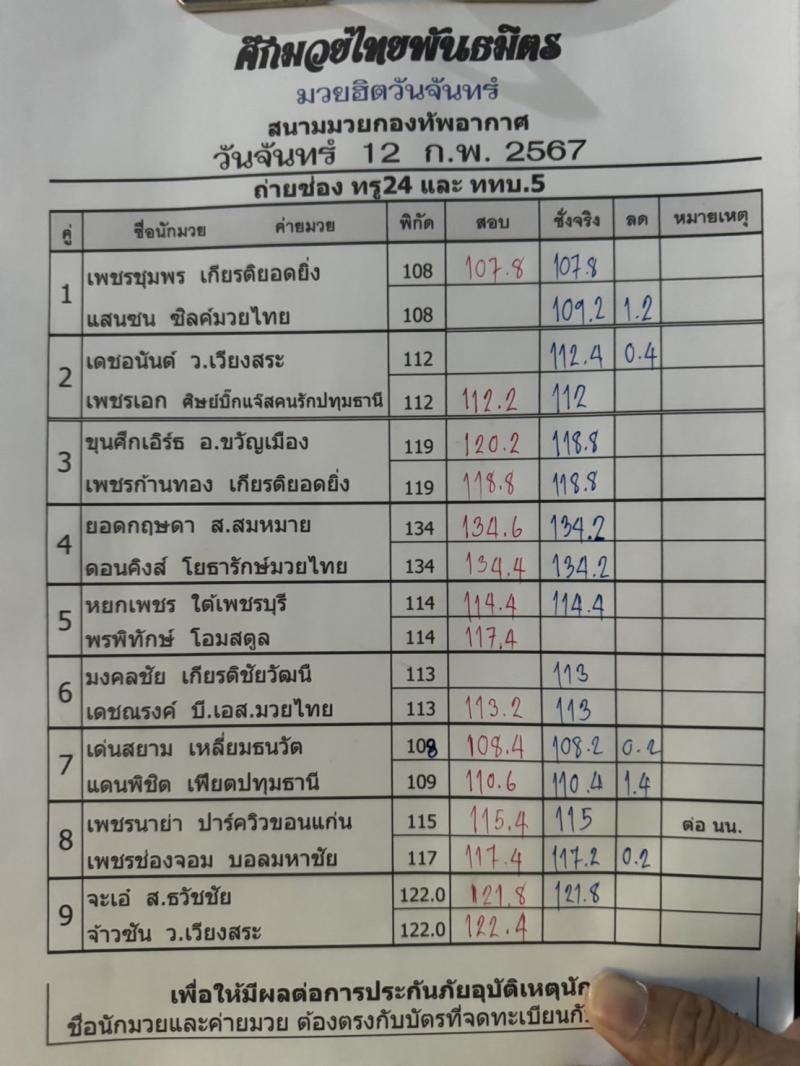 ศึกมวยไทยพันธมิตร
มวยฮิตวันจันทร์
สนามมวยกองทัพอากาศ
วันจันทร์ 12 ก.พ. 2567
ถ่ายช่อง ทรู24 และ ททบ.5
คู่ ชื่อนักมวย ค่ายมวย พิกัด สอบ ชั่งจริง ลด หมายเหตุ
1 เพชรชุมพร เกียรติยอดยิ่ง 108 107.8 107.8
แสนซน ซิลค์มวยไทย 108 109.2 1.2
2 เดชอนันต์ ว.เวียงสระ 112 112.4 0.4
เพชรเอก ศิษย์บิ๊กแจ๊สคนรักปทุมธานี 112 112.2 112
3 ขุนศึกเอิร์ธ อ.ขวัญเมือง 119 120.2 118.8
เพชรก้านทอง เกียรติยอดยิ่ง 119 118.8 118.8
4 ยอดกฤษดา ส.สมหมาย 134 134.6 134.2
ดอนคิงส์ โยธารักษ์มวยไทย 134 134.4 134.2
5 หยกเพชร ใต้เพชรบุรี 114 114.4 114.4
พรพิทักษ์ โอมสตูล 114 117.4
6 มงคลชัย เกียรติชัยวัฒน์ 113 113
เดชณรงค์ บี.เอส.มวยไทย 113 113.2 113
7 เด่นสยาม เหลี่ยมธนวัต 108 108.4 108.2 0.2
แดนพิชิต เพียตปทุมธานี 109 110.6 110.4 1.4
8 เพชรนาย่า ปาร์ควิวขอนแก่น 115 115.4 115 ต่อ นน.
เพชรช่องจอม บอลมหาชัย 117 117.4 117.2 0.2
9 จะเอ๋ ส.ธวัชชัย 122.0 121.8 121.8
จ้าวซัน ว.เวียงสระ 122.0 122.4
เพื่อให้มีผลต่อการประกันภัยอุบัติเหตุนัก
ชื่อนักมวยและค่ายมวย ต้องตรงกับบัตรที่จดทะเบียน